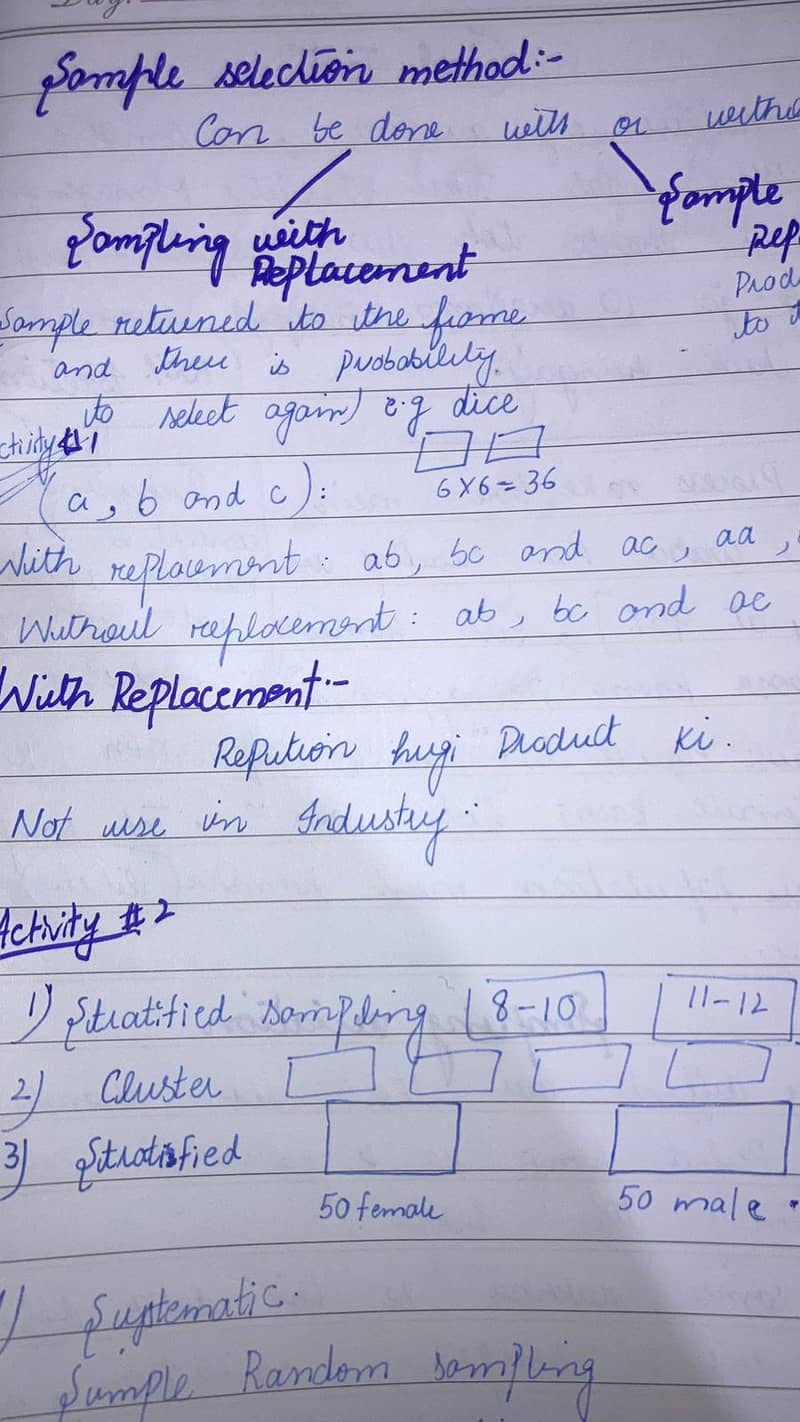 Day.
Sample selection method:-
Can be done with or
Sampling with
Replacement
Sample
Sample returned to the frame
and there is probability
to select again) e.g dice
to
#1
6x6=36
(a, b and c):
With replacement: ab, bc and ac, aa,
Without replacement: ab, bc and ac
With Replacement:-
Repution hugi Product ki.
Not use in Industry:
Activity #2
1) Stratified sampling 8-10 11-12
2) Cluster
3) Stratisfied
50 female 50 male.
Systematic.
Simple Random sampling